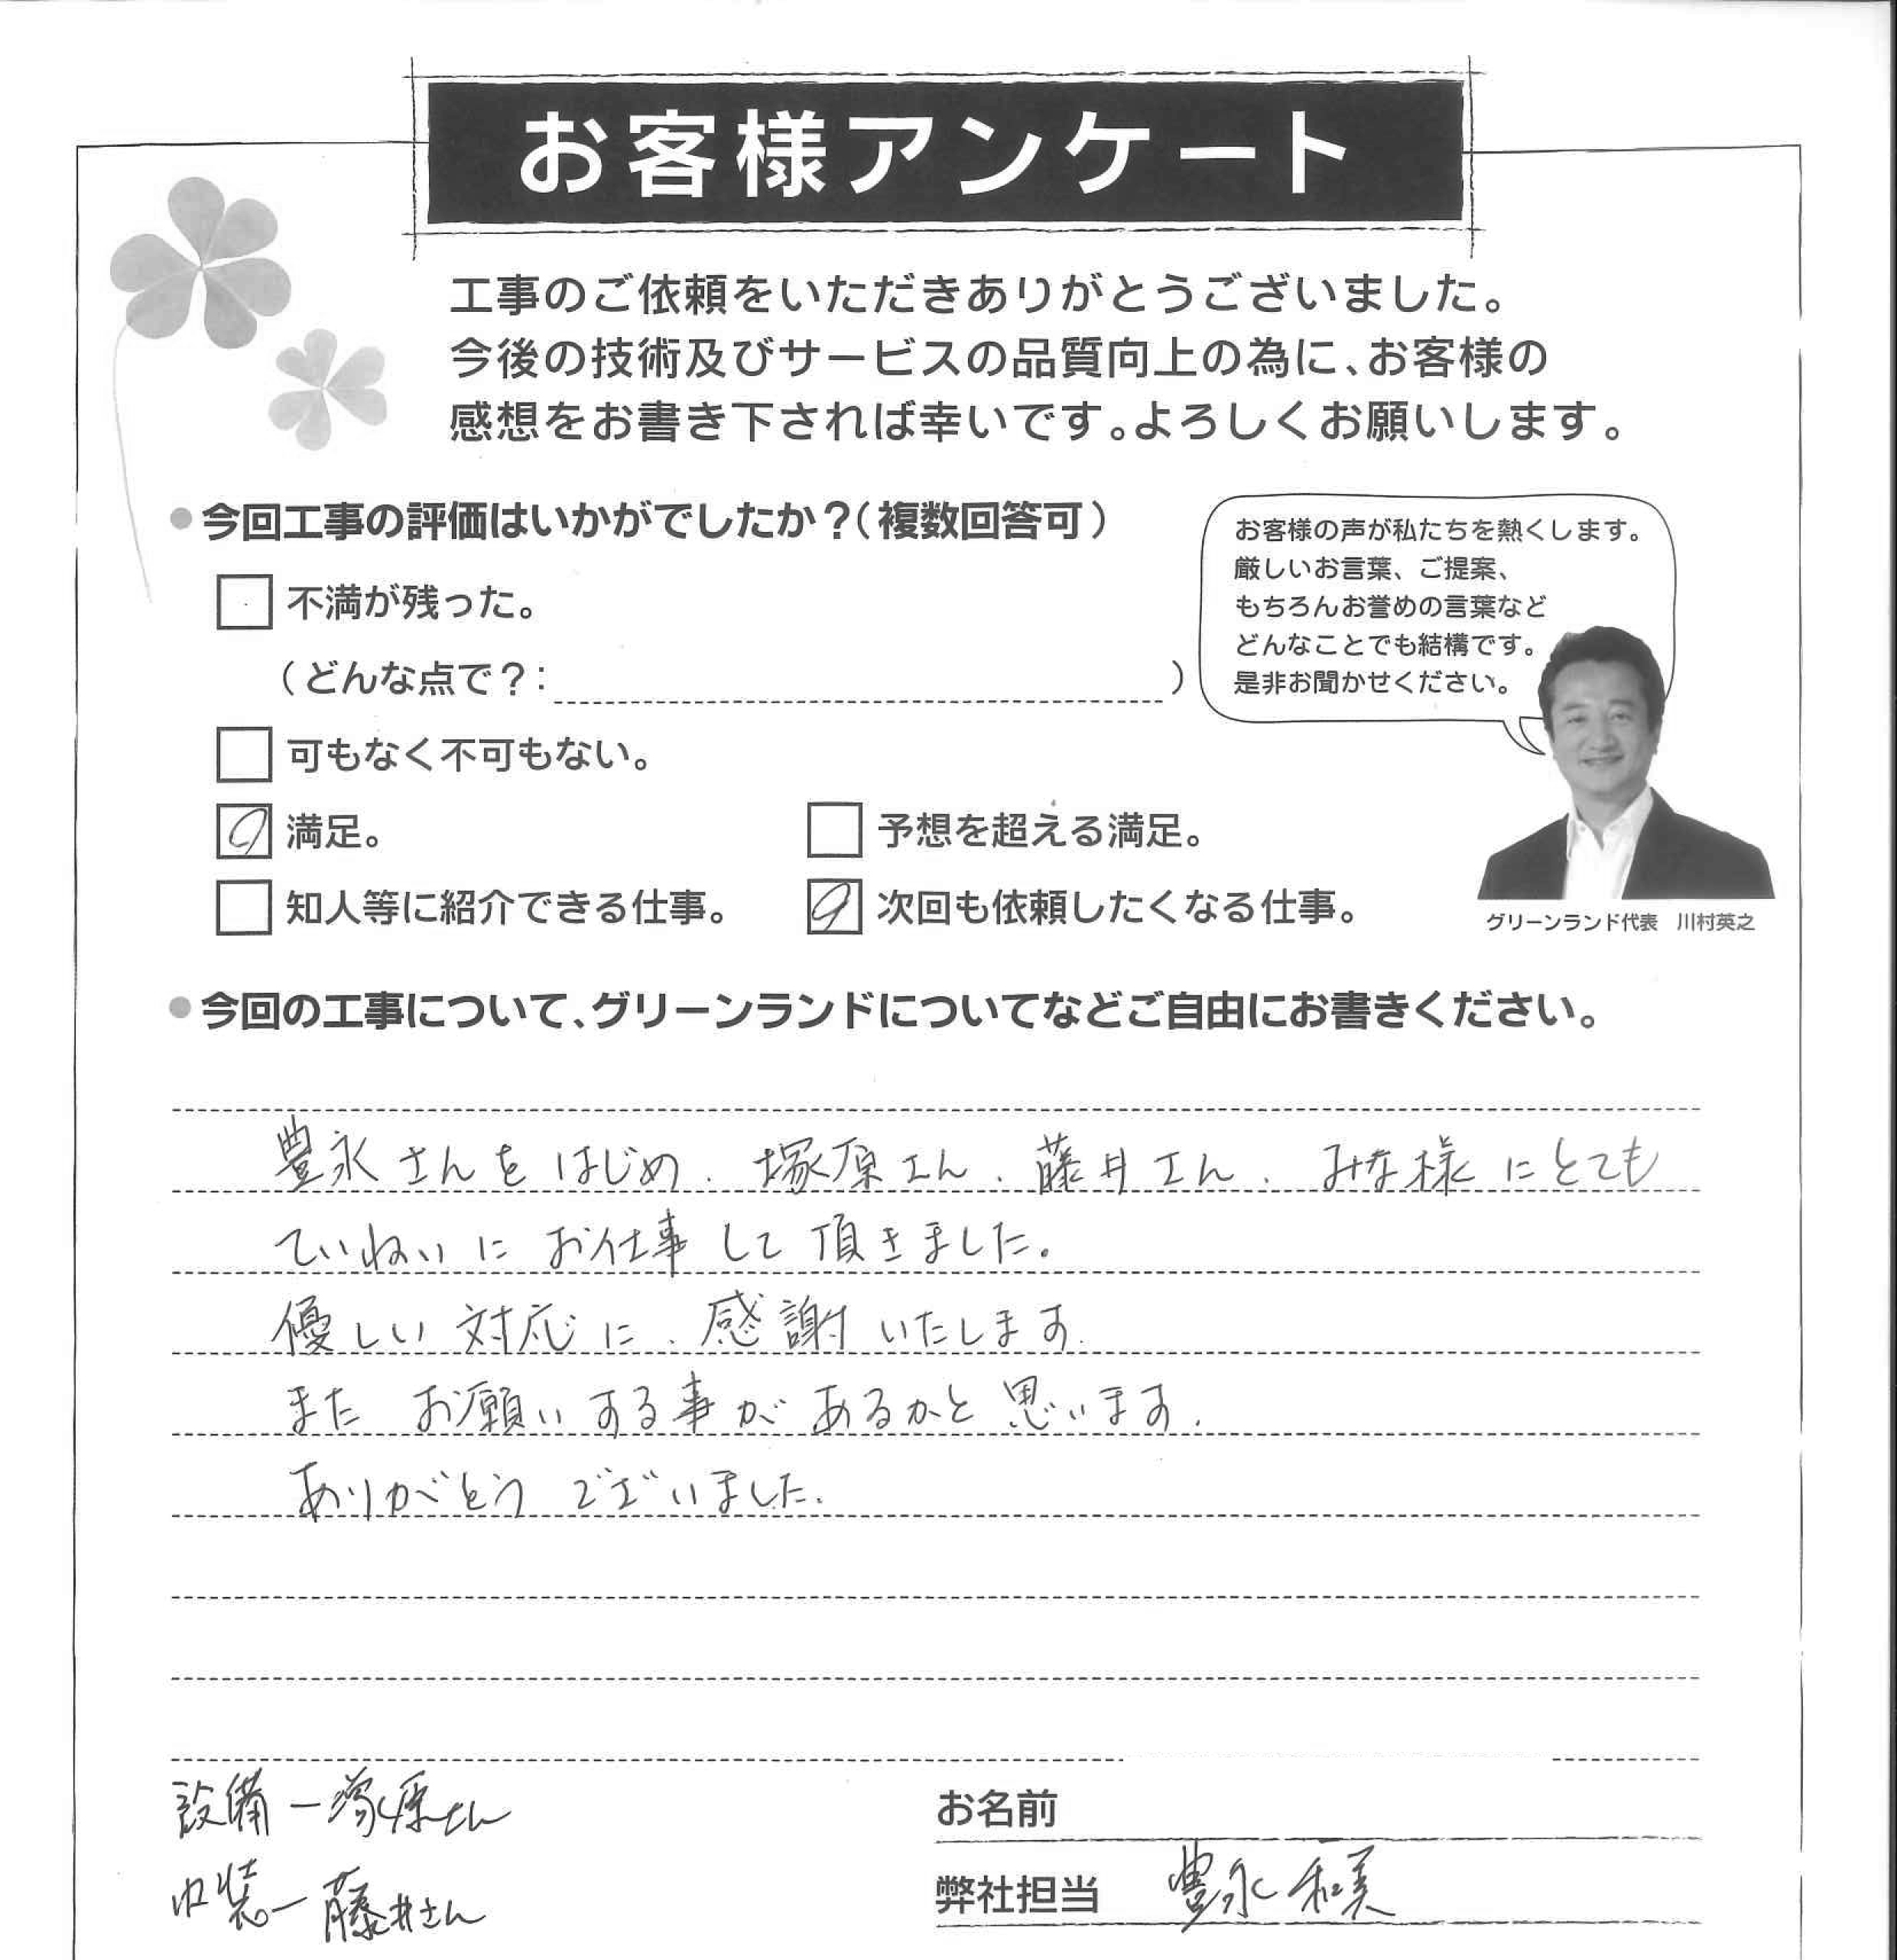 お客様アンケート
工事のご依頼をいただきありがとうございました。
今後の技術及びサービスの品質向上の為に、お客様の
感想をお書き下されば幸いです。よろしくお願いします。
●今回工事の評価はいかがでしたか？（複数回答可）
不満が残った。
（どんな点で？：　　　　）
可もなく不可もない。
満足。
予想を超える満足。
知人等に紹介できる仕事。
次回も依頼したくなる仕事。
お客様の声が私たちを熱くします。
厳しいお言葉、ご提案、
もちろんお誉めの言葉など
どんなことでも結構です。
是非お聞かせください。
グリーンランド代表　川村英之
●今回の工事について、グリーンランドについてなどご自由にお書きください。
豊永さんをはじめ、塚原さん、藤井さん、みな様にとても
ていねいにお仕事して頂きました。
優しい対応に、感謝いたします。
またお願いする事があるかと思います。
ありがとうございました。
設備ー塚原さん
内装ー藤井さん
お名前
弊社担当　豊永和美